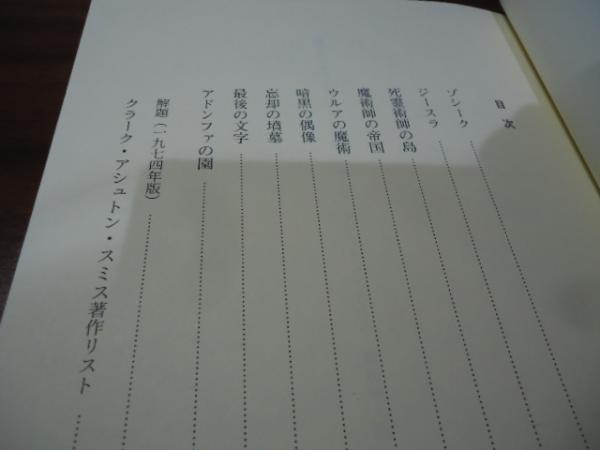 目次
ゾシーク
ジースラ
死霊術師の島
魔術師の帝国
ウルアの魔術
暗黒の偶像
忘却の墳墓
最後の文字
アドンファの園
解題（一九七四年版）
クラーク・アシュトン・スミス著作リスト